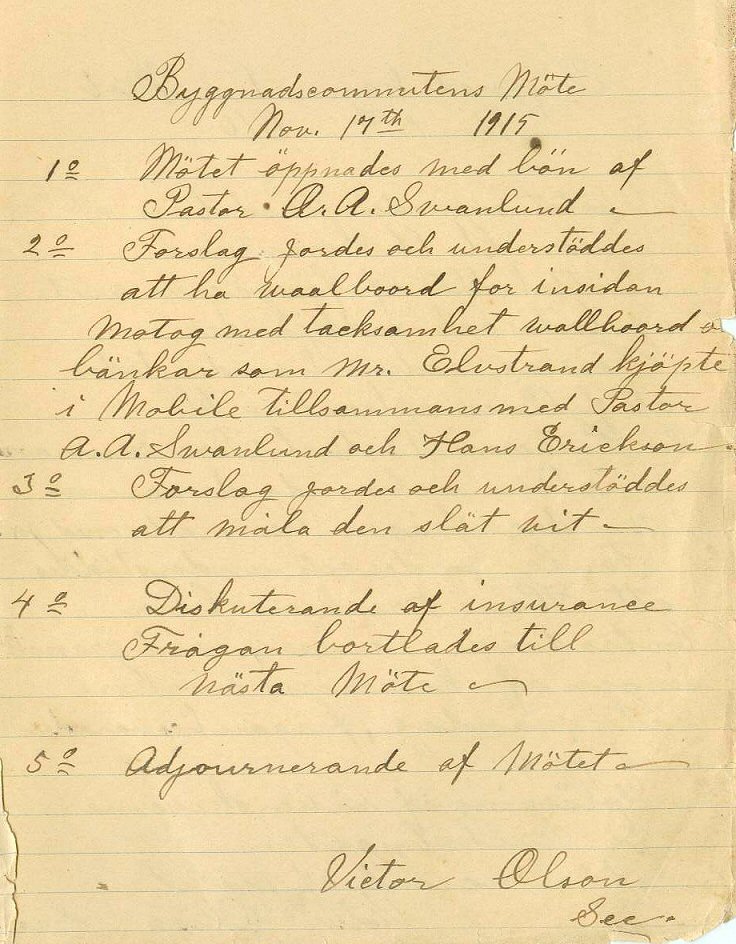 Byggnadscommutens Möte
Nov. 17th 1915
1o Mötet öppnades med bön af
Pastor A. A. Swanlund
2o Forslag jordes och understöddes
att ha waalboord for insidan
Motog med tacksamhet wallboord o
bänkar som Mr. Elvstrand kjöpte
i Mobile tillsammans med Pastor
A. A. Swanlund och Hans Erickson.
3o Forslag jordes och understöddes
att måla den slät vit
4o Diskuterande af insurance
Frågan bortlades till
nästa Möte
5o Adjournerande af Mötet
Victor Olson
Sec.